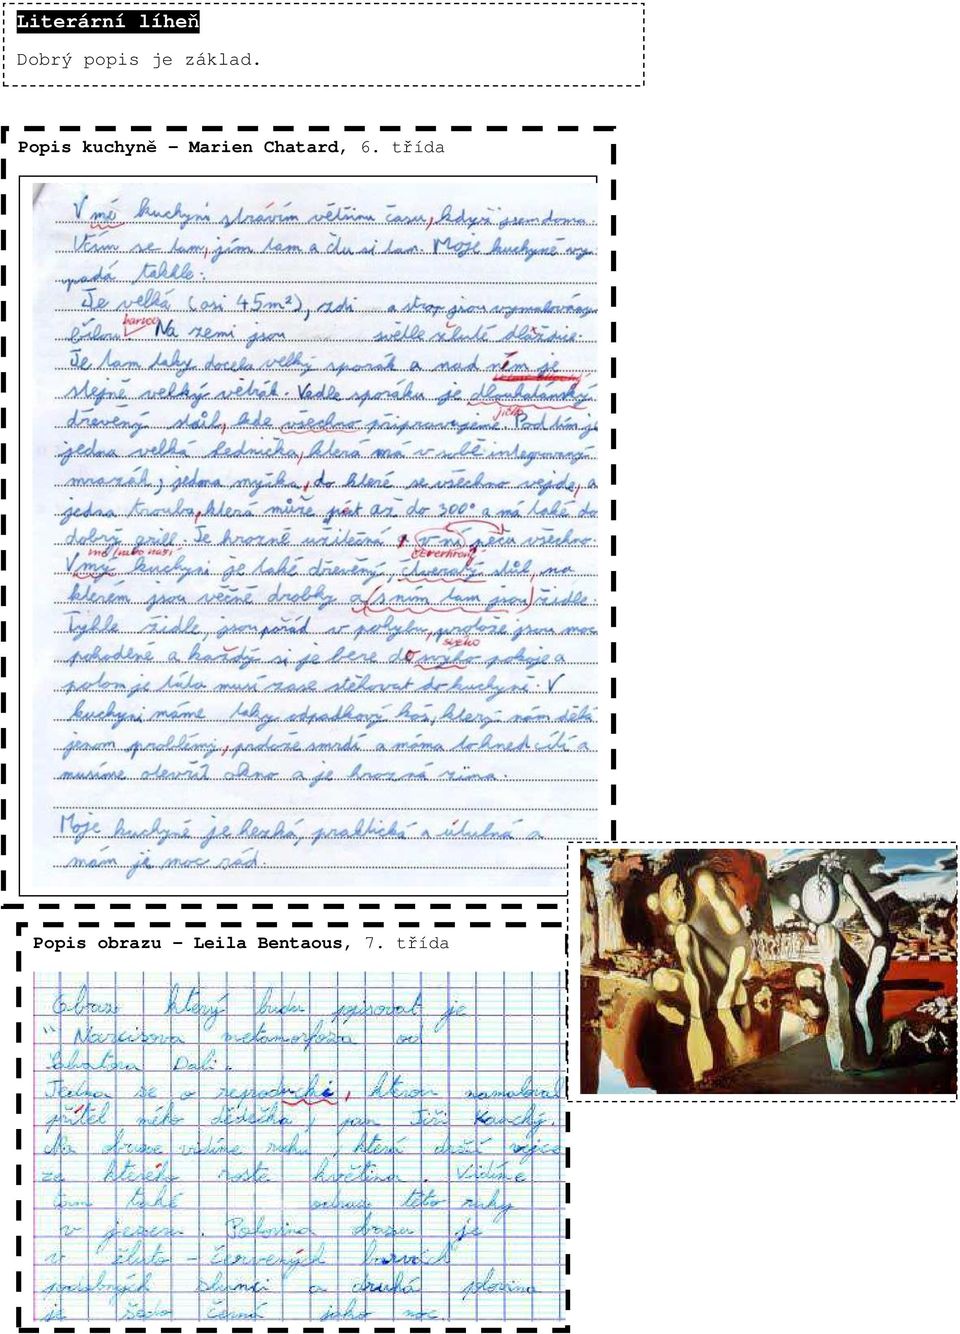 Literární líheň
Dobrý popis je základ.
Popis kuchyně – Marien Chatard, 6. třída
V mé kuchyni strávím většinu času, když jsem doma.
Učím se tam, jím tam a čtu si tam. Moje kuchyně vy
padá takhle:
Je velká (asi 45m²), zdi a strop jsou vymalovány
barvou
bílou. Na zemi jsou světle žluté dlaždice.
Je tam taky docela velký sporák a nad ním je
stejně velký větrák. Vedle sporáku je dlouhatánský
jídlo
dřevěný stůl, kde všechno připravujeme. Pod tím je
jedna velká lednička, která má v sobě integrovaný
mrazák, jedna myčka, do které se všechno vejde, a
jedna trouba, která může jít až do 300° a má také do
dobrý grill. Je hrozně užitečná a v ní peču všechno.
mé/nebo naší čtverhraný
V my kuchyni je také dřevený, čtveratý stůl, na
kterém jsou věčně drobky a (s ním tam jsou) židle.
Tyhle židle, jsou pořád v pohybu, protože jsou moc
svého
pohodené a každý si je bere do svýho pokoje a
potom je táta musí zase stěhovat do kuchyně. V
kuchyni máme taky odpadkový koš, který nám dělá
jenom problémy, protože smrdí a máma to hned cítí a
musíme otevřít okno a je hrozná zima.
Moje kuchyně je hezká, praktická a útulná a
mám je moc rád.
Popis obrazu – Leila Bentaous, 7. třída
Obraz který budu popisovat je
" Narcisova metamorfoza od
Salvatora Dalí.
Jedna se o reprodukci, kterou namaloval
přítel mého dědečka, pan Jiří Kauchý.
Na obraze vidíme ruku, která drží vejce
ze kterého roste květina. Vidíme
tam také odraz této ruky
v jezeru. Polovina obrazu je
v žluto - červených barvách
podobných slunci a druhá polovina
je šedo černá jako noc.